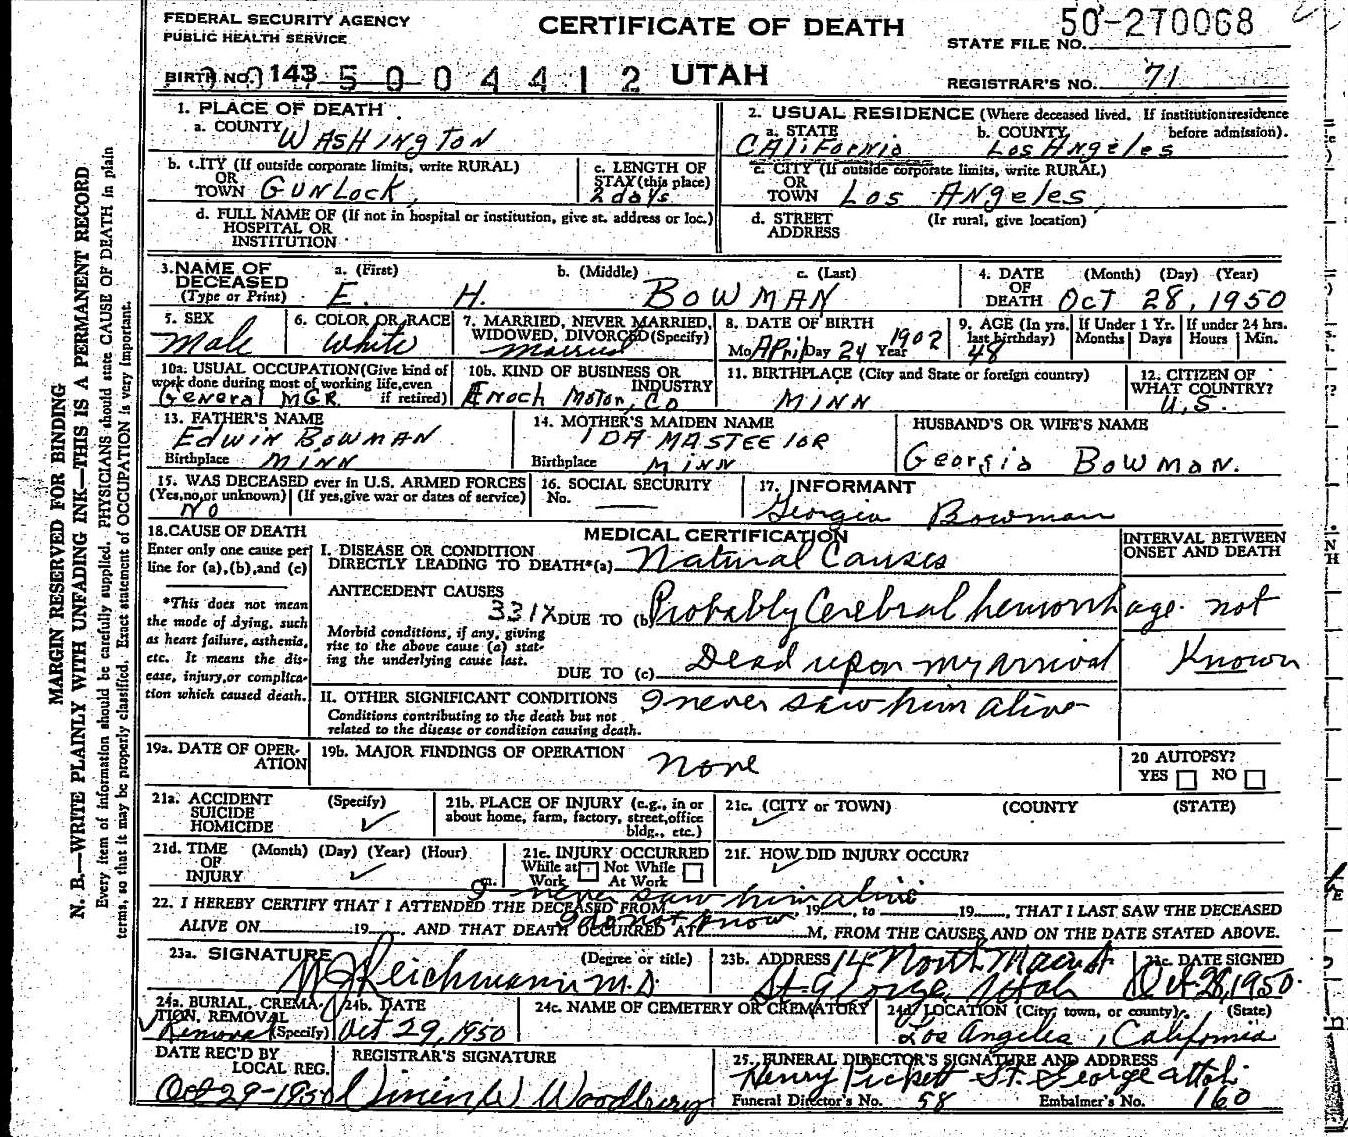 FEDERAL SECURITY AGENCY
PUBLIC HEALTH SERVICE
CERTIFICATE OF DEATH
50-270068
STATE FILE NO.
BIRTH NO. 143 5 0 0 4 4 1 2 UTAH
REGISTRAR'S NO. 71
1. PLACE OF DEATH
a. COUNTY WASHINGTON
2. USUAL RESIDENCE (Where deceased lived. If institution: residence before admission).
a. STATE California
b. COUNTY Los Angeles
b. CITY (If outside corporate limits, write RURAL)
OR
TOWN GUNLOCK,
c. LENGTH OF
STAY (this place)
2 days
c. CITY (If outside corporate limits, write RURAL)
OR
TOWN Los Angeles
d. FULL NAME OF (If not in hospital or institution, give st. address or loc.)
HOSPITAL OR
INSTITUTION
d. STREET (If rural, give location)
ADDRESS
3. NAME OF DECEASED
(Type or Print)
a. (First) E.
b. (Middle) H.
c. (Last) BOWMAN
4. DATE OF DEATH (Month) (Day) (Year)
Oct 28, 1950
5. SEX
Male
6. COLOR OR RACE
White
7. MARRIED, NEVER MARRIED,
WIDOWED, DIVORCED (Specify)
Married
8. DATE OF BIRTH
Mo. April Day 24 Year 1902
9. AGE (In yrs. last birthday)
48
If Under 1 Yr.
Months Days
If under 24 hrs.
Hours Min.
10a. USUAL OCCUPATION (Give kind of
work done during most of working life, even
if retired)
General MGR.
10b. KIND OF BUSINESS OR
INDUSTRY
Enoch Motor, Co
11. BIRTHPLACE (City and State or foreign country)
MINN
12. CITIZEN OF
WHAT COUNTRY?
U.S.
13. FATHER'S NAME
EDWIN BOWMAN
Birthplace MINN
14. MOTHER'S MAIDEN NAME
IDA
Birthplace MINN
HUSBAND'S OR WIFE'S NAME
Georgia Bowman.
15. WAS DECEASED ever in U.S. ARMED FORCES
(Yes, no, or unknown) (If yes, give war or dates of service)
NO
16. SOCIAL SECURITY
No.
17. INFORMANT
Georgia Bowman
18. CAUSE OF DEATH
Enter only one cause per
line for (a), (b), and (c)
*This does not mean
the mode of dying, such
as heart failure, asthenia,
etc. It means the dis-
ease, injury, or complica-
tion which caused death.
MEDICAL CERTIFICATION
INTERVAL BETWEEN
ONSET AND DEATH
I. DISEASE OR CONDITION
DIRECTLY LEADING TO DEATH* (a) Natural Causes
ANTECEDENT CAUSES
331X DUE TO (b) Probably Cerebral hemorrhage. not Known
Morbid conditions, if any, giving
rise to the above cause (a) stat-
ing the underlying cause last.
DUE TO (c) Dead upon my arrival
II. OTHER SIGNIFICANT CONDITIONS I never saw him alive
Conditions contributing to the death but not
related to the disease or condition causing death.
19a. DATE OF OPER-
ATION
19b. MAJOR FINDINGS OF OPERATION
none
20 AUTOPSY?
YES NO
21a. ACCIDENT
SUICIDE
HOMICIDE
(Specify)
21b. PLACE OF INJURY (e.g., in or
about home, farm, factory, street, office
bldg., etc.)
21c. (CITY or TOWN) (COUNTY) (STATE)
21d. TIME
OF
INJURY
(Month) (Day) (Year) (Hour)
m.
21e. INJURY OCCURRED
While at Work Not While At Work
21f. HOW DID INJURY OCCUR?
I never saw him alive
22. I HEREBY CERTIFY THAT I ATTENDED THE DECEASED FROM 19 , to 19 , THAT I LAST SAW THE DECEASED
I do not know
ALIVE ON 19 , AND THAT DEATH OCCURRED AT M, FROM THE CAUSES AND ON THE DATE STATED ABOVE.
23a. SIGNATURE (Degree or title)
Reichmann M.D.
23b. ADDRESS 14 North Main St
St. George, Utah
23c. DATE SIGNED
Oct. 28, 1950.
24a. BURIAL, CREMA-
TION, REMOVAL
(Specify)
Removal
24b. DATE
Oct 29, 1950
24c. NAME OF CEMETERY OR CREMATORY
24d. LOCATION (City, town, or county) (State)
Los Angeles, California
DATE REC'D BY
LOCAL REG.
Oct 29-1950
REGISTRAR'S SIGNATURE
W Woodbury
25. FUNERAL DIRECTOR'S SIGNATURE AND ADDRESS
Henry Pickett St. George
Funeral Director's No. 58
Embalmer's No. 160
MARGIN RESERVED FOR BINDING
N. B.—WRITE PLAINLY WITH UNFADING INK—THIS IS A PERMANENT RECORD
Every item of information should be carefully supplied. PHYSICIANS should state CAUSE OF DEATH in plain
terms, so that it may be properly classified. Exact statement of OCCUPATION is very important.